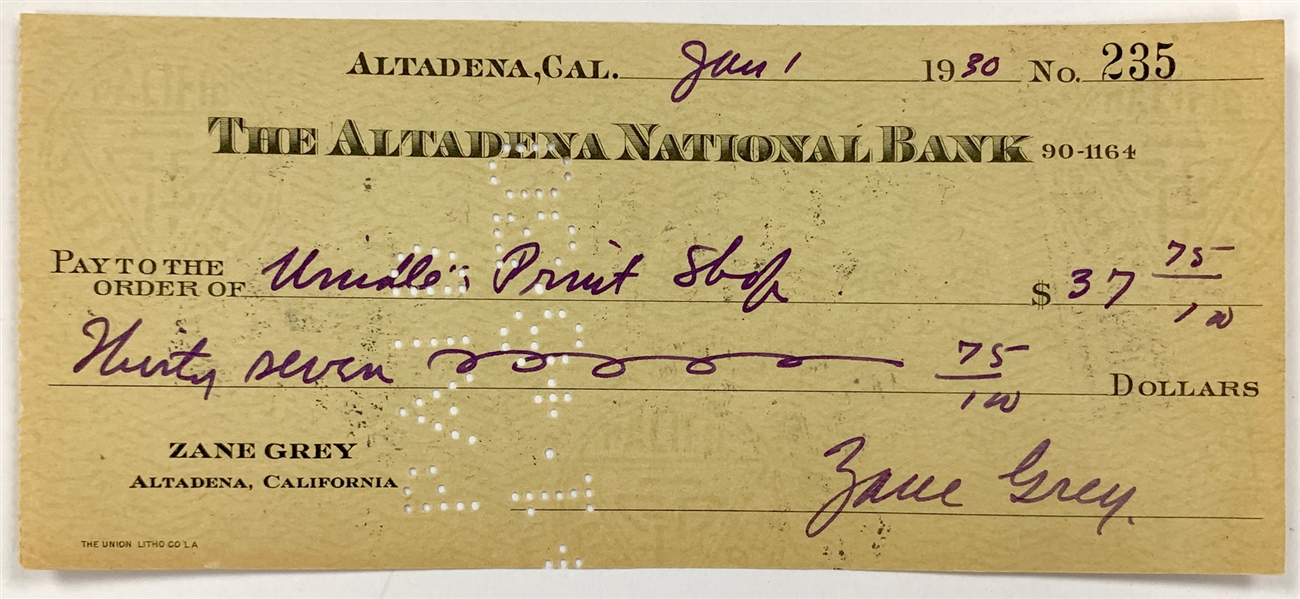 ALTADENA, CAL. Jan 1 1930 No. 235
THE ALTADENA NATIONAL BANK 90-1164
PAY TO THE
ORDER OF Print Shop $ 37 75/100
Thirty seven 75/100 DOLLARS
ZANE GREY
ALTADENA, CALIFORNIA
Zane Grey
THE UNION LITHO CO L A